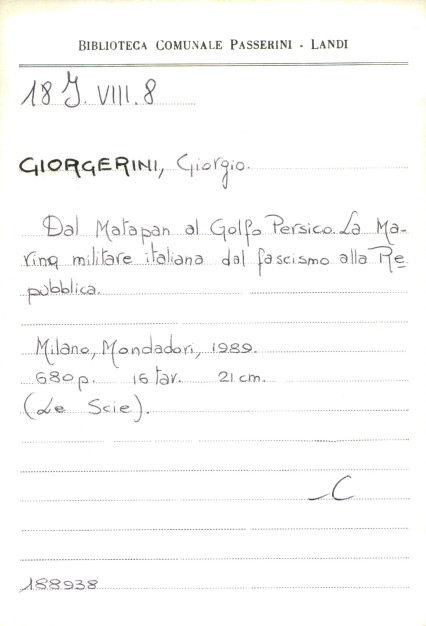 BIBLIOTECA COMUNALE PASSERINI - LANDI
18 J. VIII. 8
GIORGERINI, Giorgio.
Dal Matapan al Golfo Persico. La Ma-
rina militare italiana dal fascismo alla Re-
pubblica.
Milano, Mondadori, 1989.
680 p. 16 tav. 21 cm.
(Le Scie).
C
188938